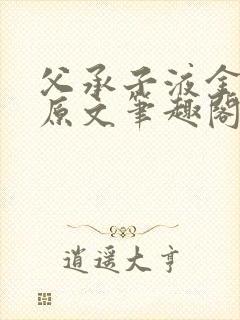 父承子液全
原文笔趣阁
逍遥大亨